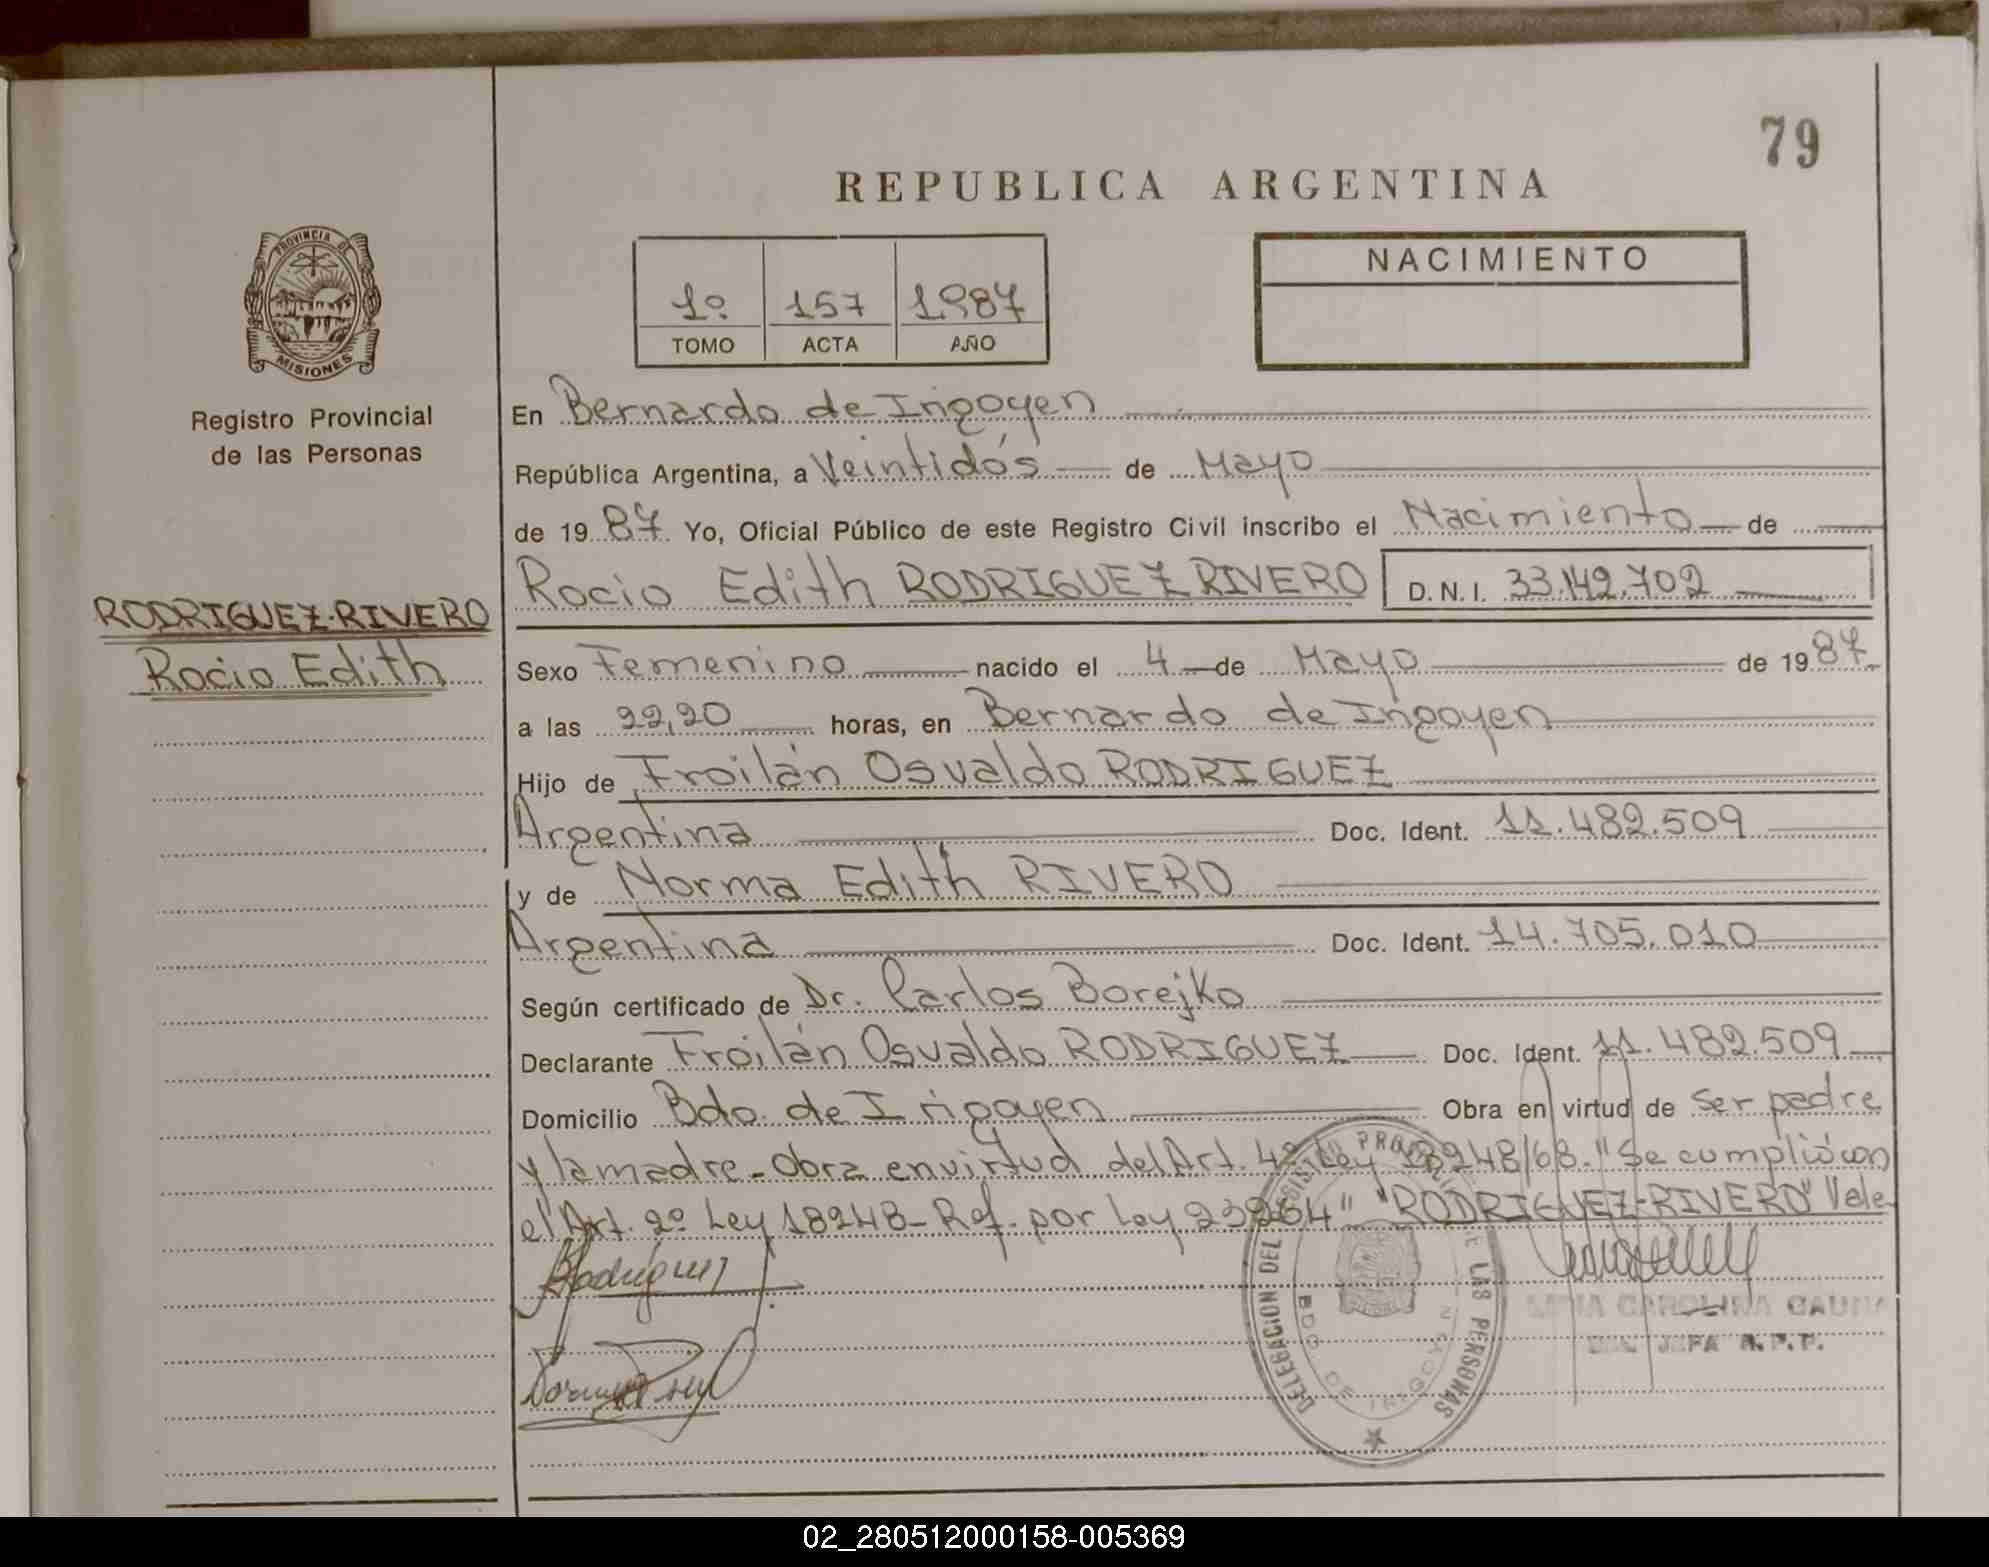 79
REPUBLICA ARGENTINA
PROVINCIA DE
MISIONES
Registro Provincial
de las Personas
1º 157 1.987
TOMO ACTA AÑO
NACIMIENTO
En Bernardo de Irigoyen
República Argentina, a Veintidós de Mayo
de 19 87 Yo, Oficial Público de este Registro Civil inscribo el Nacimiento de
Rocio Edith RODRIGUEZ RIVERO D.N.I. 33.142.702
RODRIGUEZ-RIVERO
Rocio Edith
Sexo Femenino nacido el 4 de Mayo de 19 87
a las 22,20 horas, en Bernardo de Irigoyen
Hijo de Froilán Osvaldo RODRIGUEZ
Argentina Doc. Ident. 11.482.509
y de Norma Edith RIVERO
Argentina Doc. Ident. 14.705.010
Según certificado de Dr. Carlos Borejko
Declarante Froilán Osvaldo RODRIGUEZ Doc. Ident. 11.482.509
Domicilio Bdo. de Irigoyen Obra en virtud de ser padre
y la madre - Obra en virtud del Art. 4º Ley 18248/68. "Se cumplió con
el Art. 2º Ley 18248 - Ref. por Ley 23264" "RODRIGUEZ-RIVERO" Vale
Rodriguez
DELEGACION DEL REGISTRO PROVINCIAL DE LAS PERSONAS
BDO DE IRIGOYEN
CAROLINA GAUNA
JEFA R.P.P.
02_280512000158-005369